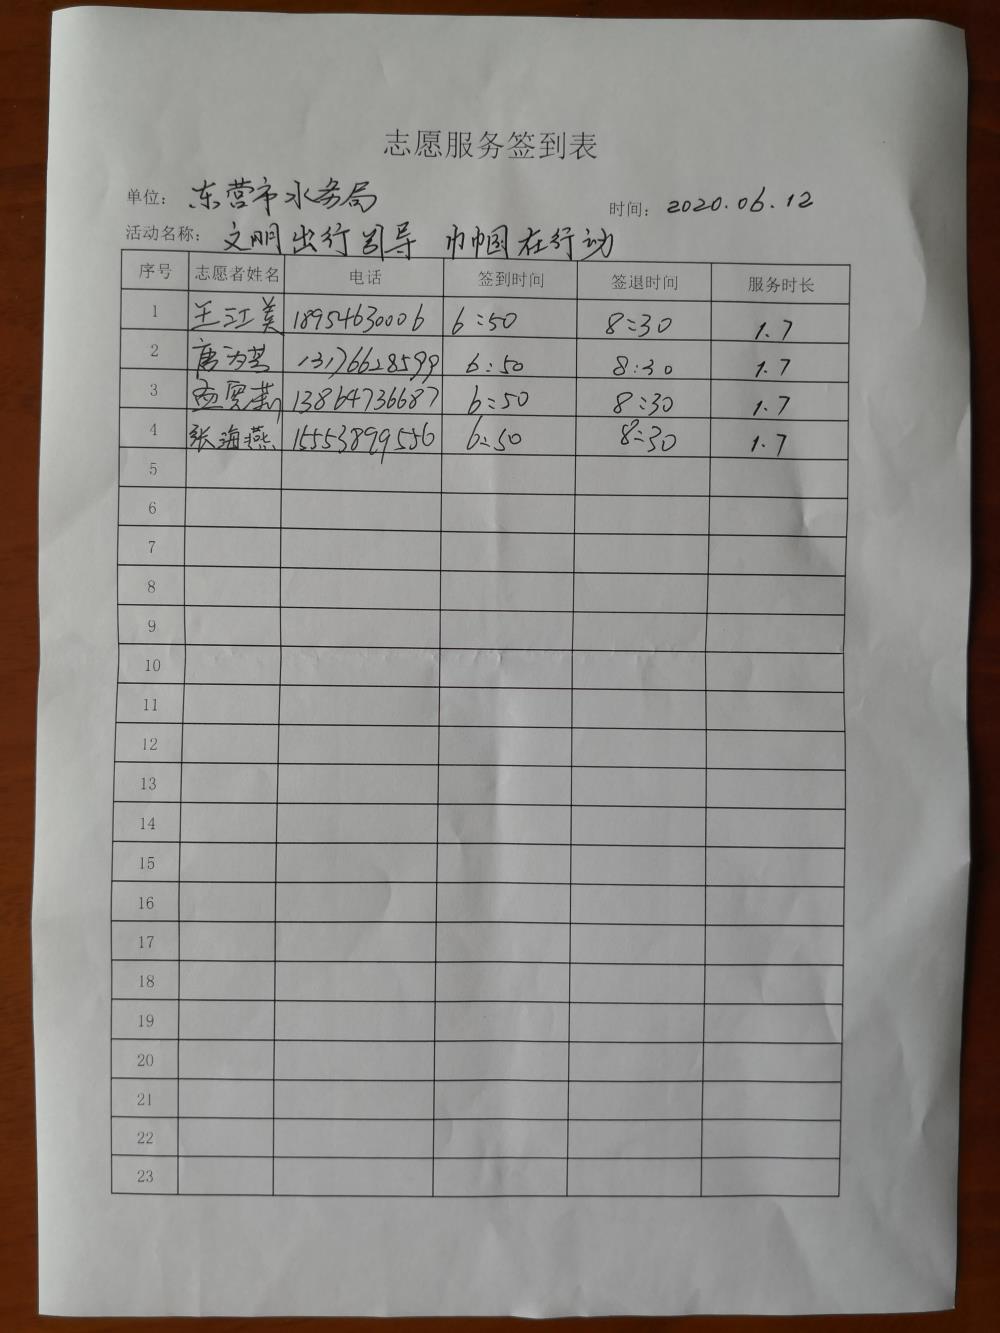 志愿服务签到表
单位: 东营市水务局 时间: 2020.06.12
活动名称: 文明出行引导 巾帼在行动
序号 志愿者姓名 电话 签到时间 签退时间 服务时长
1 王江美 18954630006 6:50 8:30 1.7
2 13176628599 6:50 8:30 1.7
3 13864736687 6:50 8:30 1.7
4 张海燕 15553899556 6:50 8:30 1.7
5
6
7
8
9
10
11
12
13
14
15
16
17
18
19
20
21
22
23